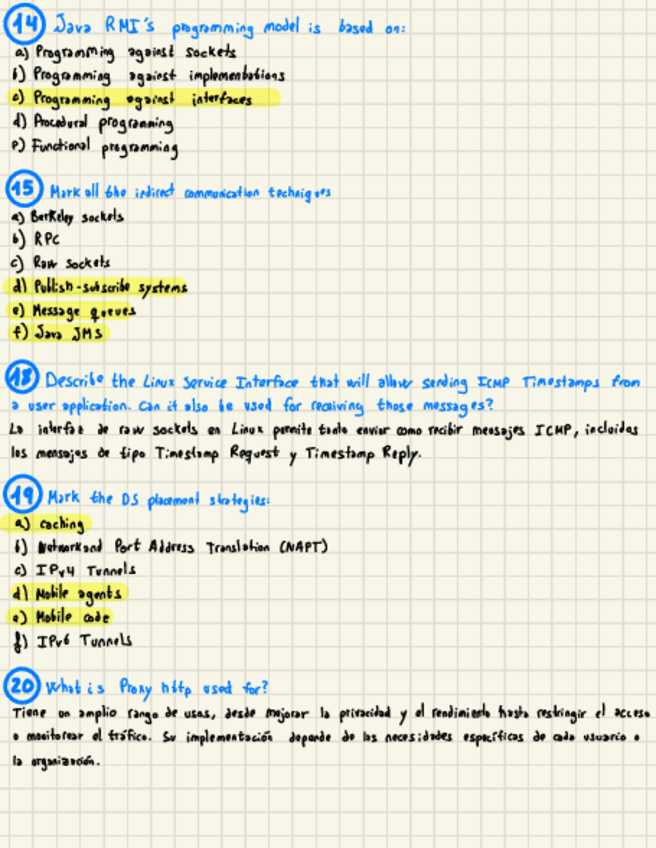 14 Java RMI's programming model is based on:
a) Programming against sockets
b) Programming against implementations
c) Programming against interfaces
d) Procedural programming
e) Functional programming
15 Mark all the indirect communication techniques
a) Berkeley sockets
b) RPC
c) Raw sockets
d) Publish-subscribe systems
e) Message queues
f) Java JMS
18 Describe the Linux Service Interface that will allow sending ICMP Timestamps from
a user application. Can it also be used for receiving those messages?
La interfaz de raw sockets en Linux permite tanto enviar como recibir mensajes ICMP, incluidas
los mensajes de tipo Timestamp Request y Timestamp Reply.
19 Mark the DS placement strategies:
a) caching
b) Network and Port Address Translation (NAPT)
c) IPv4 Tunnels
d) Mobile agents
e) Mobile code
f) IPv6 Tunnels
20 What is Proxy http used for?
Tiene un amplio rango de usos, desde mejorar la privacidad y el rendimiento hasta restringir el acceso
o monitorear el tráfico. Su implementación depende de las necesidades específicas de cada usuario o
la organización.